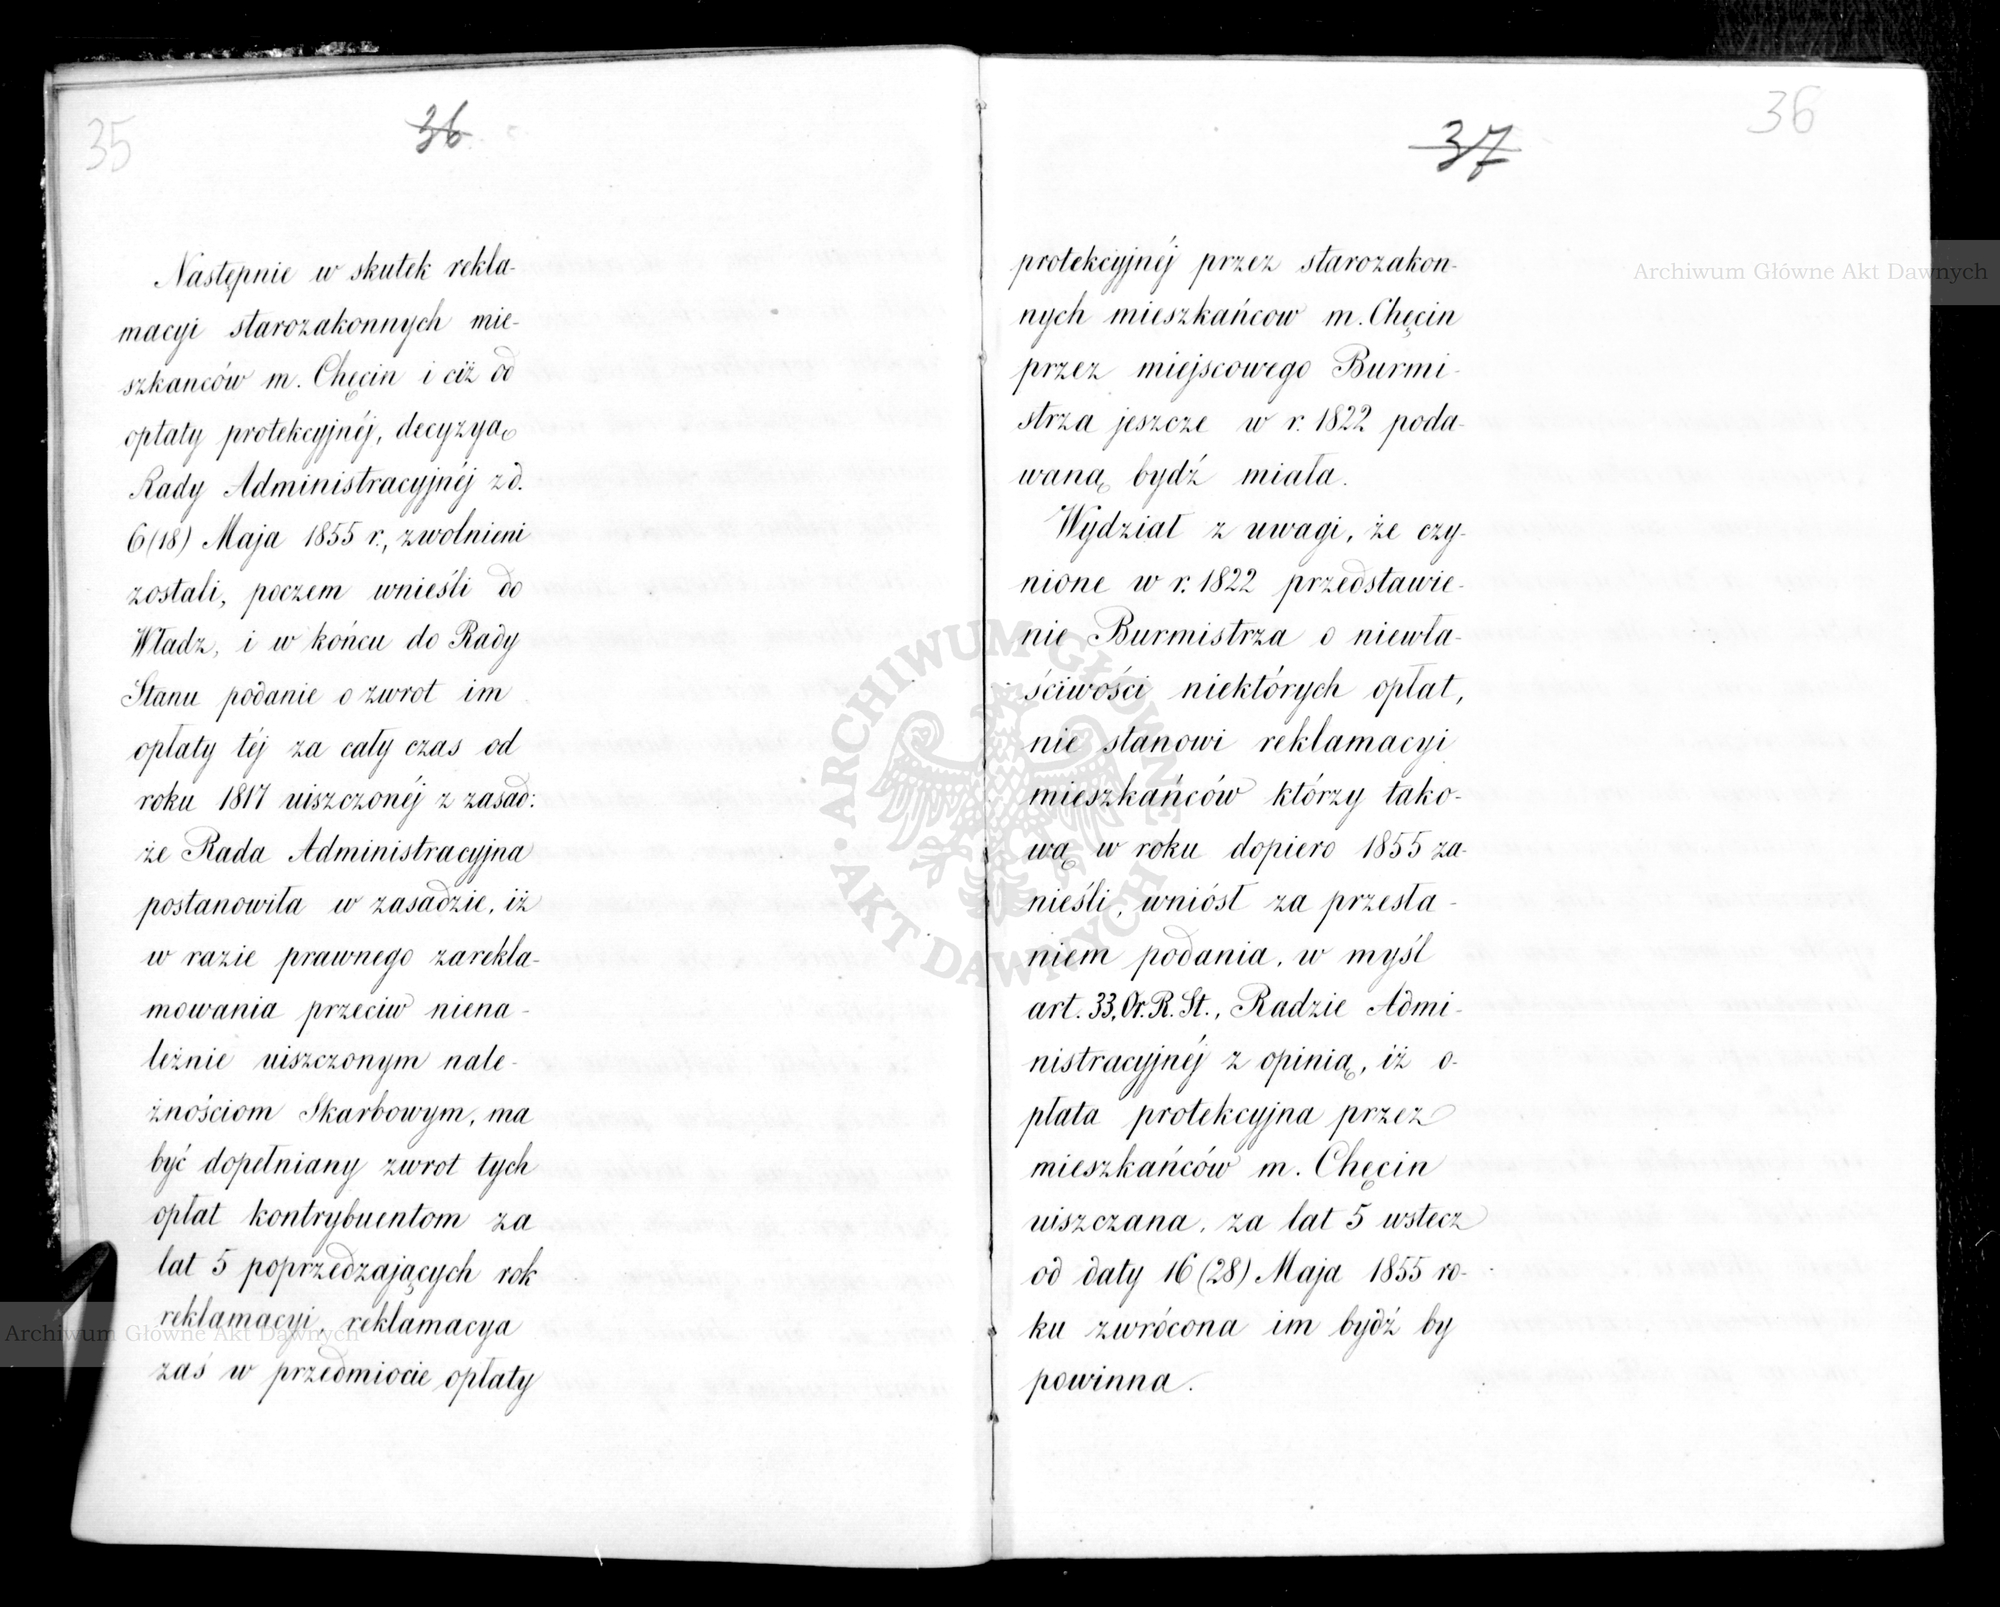 35
36
Następnie w skutek rekla-
macyi starozakonnych mie-
szkanców m. Chęcin i ciż od
opłaty protekcyjnéj, decyzyą
Rady Administracyjnéj z d.
6 (18) Maja 1855 r., zwolnieni
zostali, poczem wnieśli do
Władz, i w końcu do Rady
Stanu podanie o zwrot im
opłaty téj za cały czas od
roku 1817 uiszczonéj z zasad:
że Rada Administracyjna
postanowiła w zasadzie, iż
w razie prawnego zarekla-
mowania przeciw niena-
leżnie uiszczonym nale-
żnościom Skarbowym, ma
być dopełniany zwrot tych
opłat kontrybuentom za
lat 5 poprzedzających rok
reklamacyi, reklamacya
zaś w przedmiocie opłaty
36
37
protekcyjnéj przez starozakon-
nych mieszkańcow m. Chęcin
przez miejscowego Burmi-
strza jeszcze w r. 1822 poda-
waną bydź miała.
Wydział z uwagi, że czy-
nione w r. 1822 przedstawie-
nie Burmistrza o niewła-
ściwości niektórych opłat,
nie stanowi reklamacyi
mieszkańców którzy tako-
wą w roku dopiero 1855 za-
nieśli, wniósł za przesła-
niem podania, w myśl
art. 33, Or. R. St., Radzie Admi-
nistracyjnéj z opinią, iż o-
płata protekcyjna przez
mieszkańców m. Chęcin
uiszczana, za lat 5 wstecz
od daty 16 (28) Maja 1855 ro-
ku zwrócona im bydź by
powinna.
Archiwum Główne Akt Dawnych
Archiwum Główne Akt Dawnych
ARCHIWUM GŁÓWNE
AKT DAWNYCH